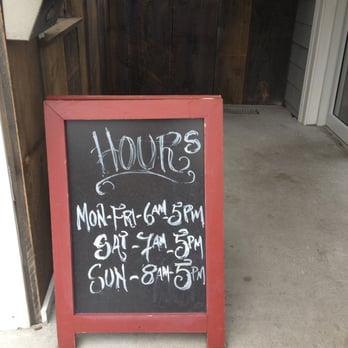 HOURS
MON-FRI-6AM-5PM
SAT-7AM-5PM
SUN-8AM-5PM